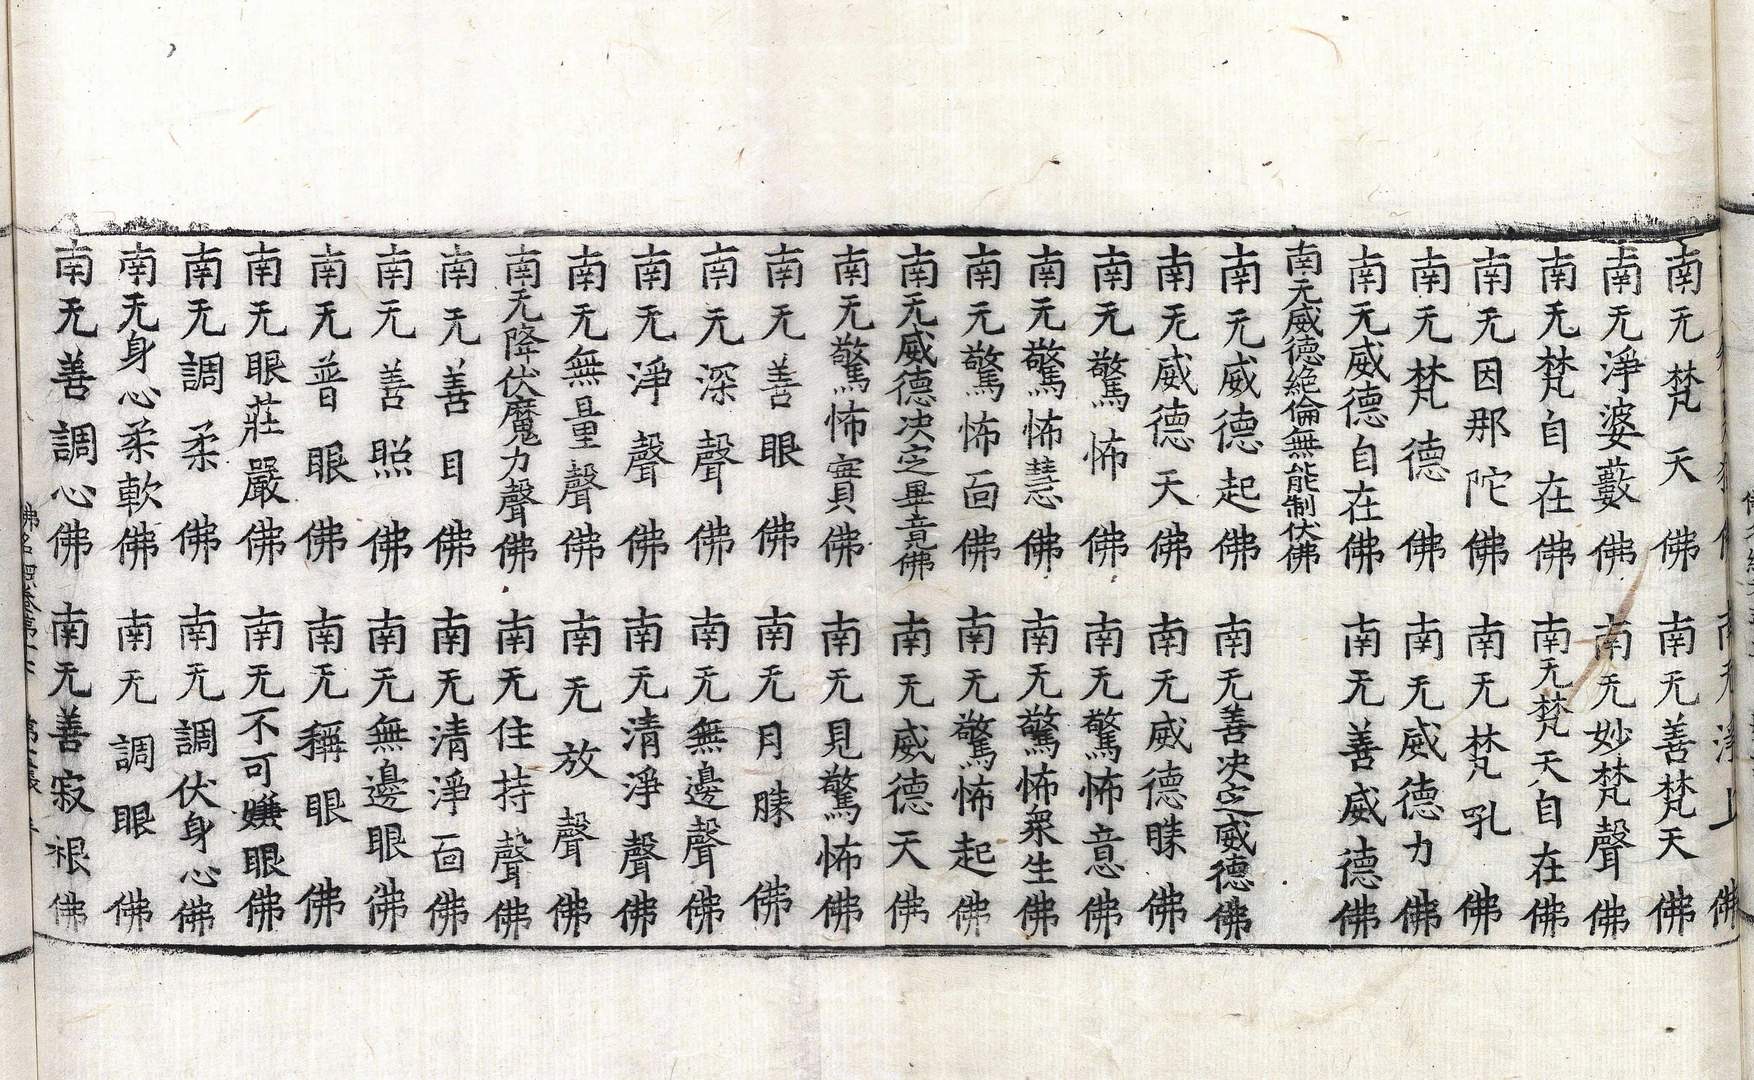 南无梵天佛 南无善梵天佛
南无淨婆藪佛 南无妙梵聲佛
南无梵自在佛 南无梵天自在佛
南无因那陀佛 南无梵吼佛
南无梵德佛 南无威德力佛
南无威德自在佛 南无善威德佛
南无威德絶倫無能制伏佛
南无威德起佛 南无善决定威德佛
南无威德天佛 南无威德𦙶佛
南无驚怖佛 南无驚怖意佛
南无驚怖慧佛 南无驚怖衆生佛
南无驚怖面佛 南无驚怖起佛
南无威德决定畢竟佛 南无威德天佛
南无驚怖實佛 南无見驚怖佛
南无善眼佛 南无月勝佛
南无深聲佛 南无無邊聲佛
南无淨聲佛 南无清淨聲佛
南无無量聲佛 南无放聲佛
南无降伏魔力聲佛 南无住持聲佛
南无善目佛 南无清淨面佛
南无善照佛 南无無邊眼佛
南无普眼佛 南无稱眼佛
南无眼莊嚴佛 南无不可嫌眼佛
南无調柔佛 南无調伏身心佛
南无身心柔軟佛 南无調眼佛
南无善調心佛 南无善寂根佛